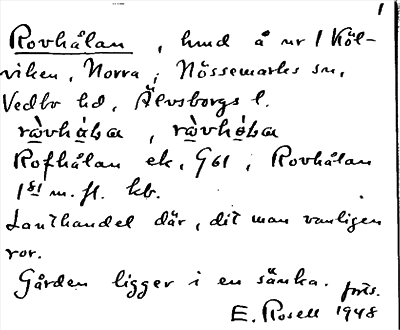 1
Rovhålan, hmd å nr 1 Köl-
viken, Norra, Nössemarks sn,
Vedbo hd, Älvsborgs l.
Rofhålan ek. G61, Rovhålan
1881 m. fl. kb.
Lanthandel där, dit man vanligen
ror.
Gården ligger i en sänka. forts.
E. Rosell 1948